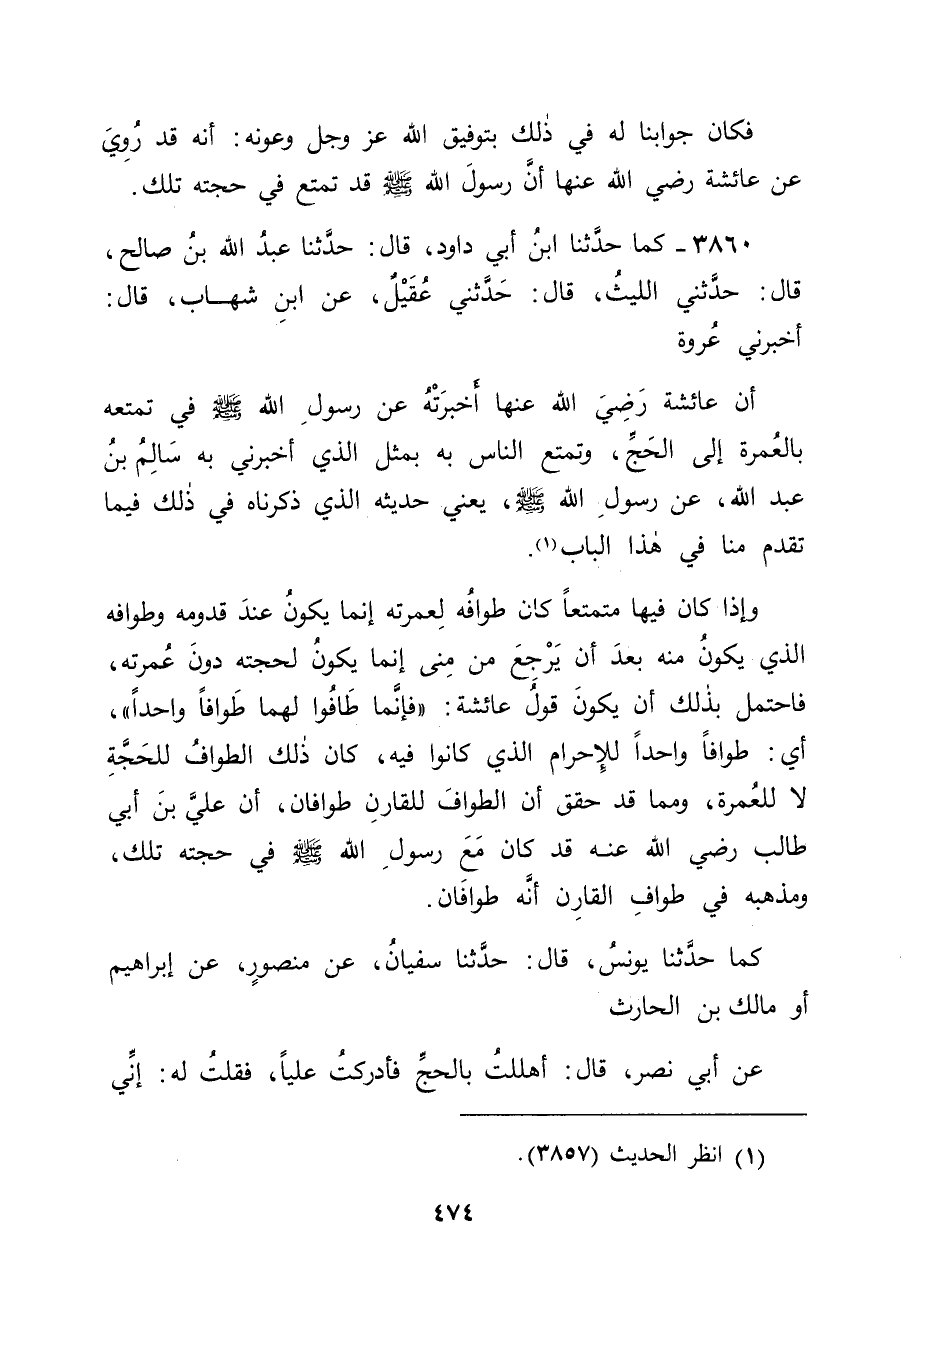 فكان جوابنا له في ذٰلك بتوفيق الله عز وجل وعونه: أنه قد رُوِيَ
عن عائشة رضي الله عنها أنَّ رسولَ الله ﷺ قد تمتع في حجته تلك.
٣٨٦٠ ـ كما حدَّثنا ابنُ أبي داود، قال: حدَّثنا عبدُ الله بنُ صالح،
قال: حدَّثني الليثُ، قال: حَدَّثني عُقَيْلٌ، عن ابنِ شهـاب، قال:
أخبرني عُروة
أن عائشة رَضِيَ الله عنها أَخبرَتْهُ عن رسولِ الله ﷺ في تمتعه
بالعُمرة إلى الحَجِّ، وتمتع الناس به بمثل الذي أخبرني به سَالِمُ بنُ
عبد الله، عن رسولِ الله ﷺ، يعني حديثه الذي ذكرناه في ذٰلك فيما
تقدم منا في هٰذا الباب(١).
وإذا كان فيها متمتعاً كان طوافُه لِعمرته إنما يكونُ عندَ قدومه وطوافه
الذي يكونُ منه بعدَ أن يَرْجِعَ من مِنى إنما يكونُ لحجته دونَ عُمرته،
فاحتمل بذٰلك أن يكونَ قولُ عائشة: «فإنَّما طَافُوا لهما طَوافاً واحداً»،
أي: طوافاً واحداً للإِحرام الذي كانوا فيه، كان ذٰلك الطوافُ للحَجَّةِ
لا للعُمرة، ومما قد حقق أن الطوافَ للقارنِ طوافان، أن عليَّ بنَ أبي
طالب رضي الله عنـه قد كان مَعَ رسولِ الله ﷺ في حجته تلك،
ومذهبه في طوافِ القارِن أنَّه طوافَان.
كما حدَّثنا يونسُ، قال: حدَّثنا سفيانُ، عن منصورٍ، عن إبراهيم
أو مالك بن الحارث
عن أبي نصر، قال: أهللتُ بالحجِّ فأدركتُ علياً، فقلتُ له: إنِّي
(١) انظر الحديث (٣٨٥٧).
٤٧٤